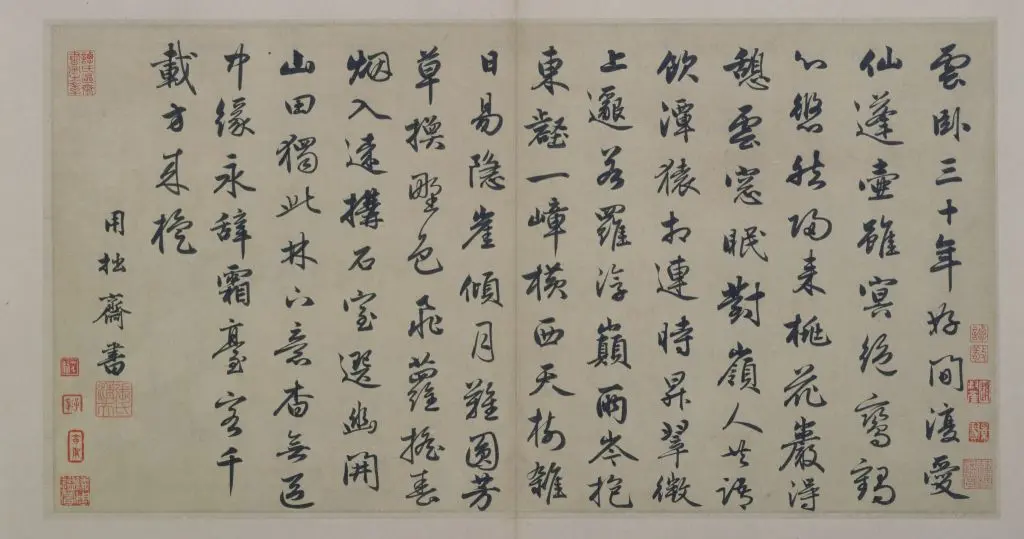 雲卧三十年好間復愛
仙蓬壺雖冥絕鸞鶴
心悠然歸来桃花巖得
憩雲窓眠對嶺人共語
飲潭猿相連時昇翠微
上邈若羅浮巔兩岑抱
東壑一嶂横西天樹雜
日易隐崖傾月難圓芳
草換野色飛蘿搖春
烟入遠搆石室選幽開
山田獨此林下意杳無區
中緣永辭霜臺客千
載方来旋
用拙齋書